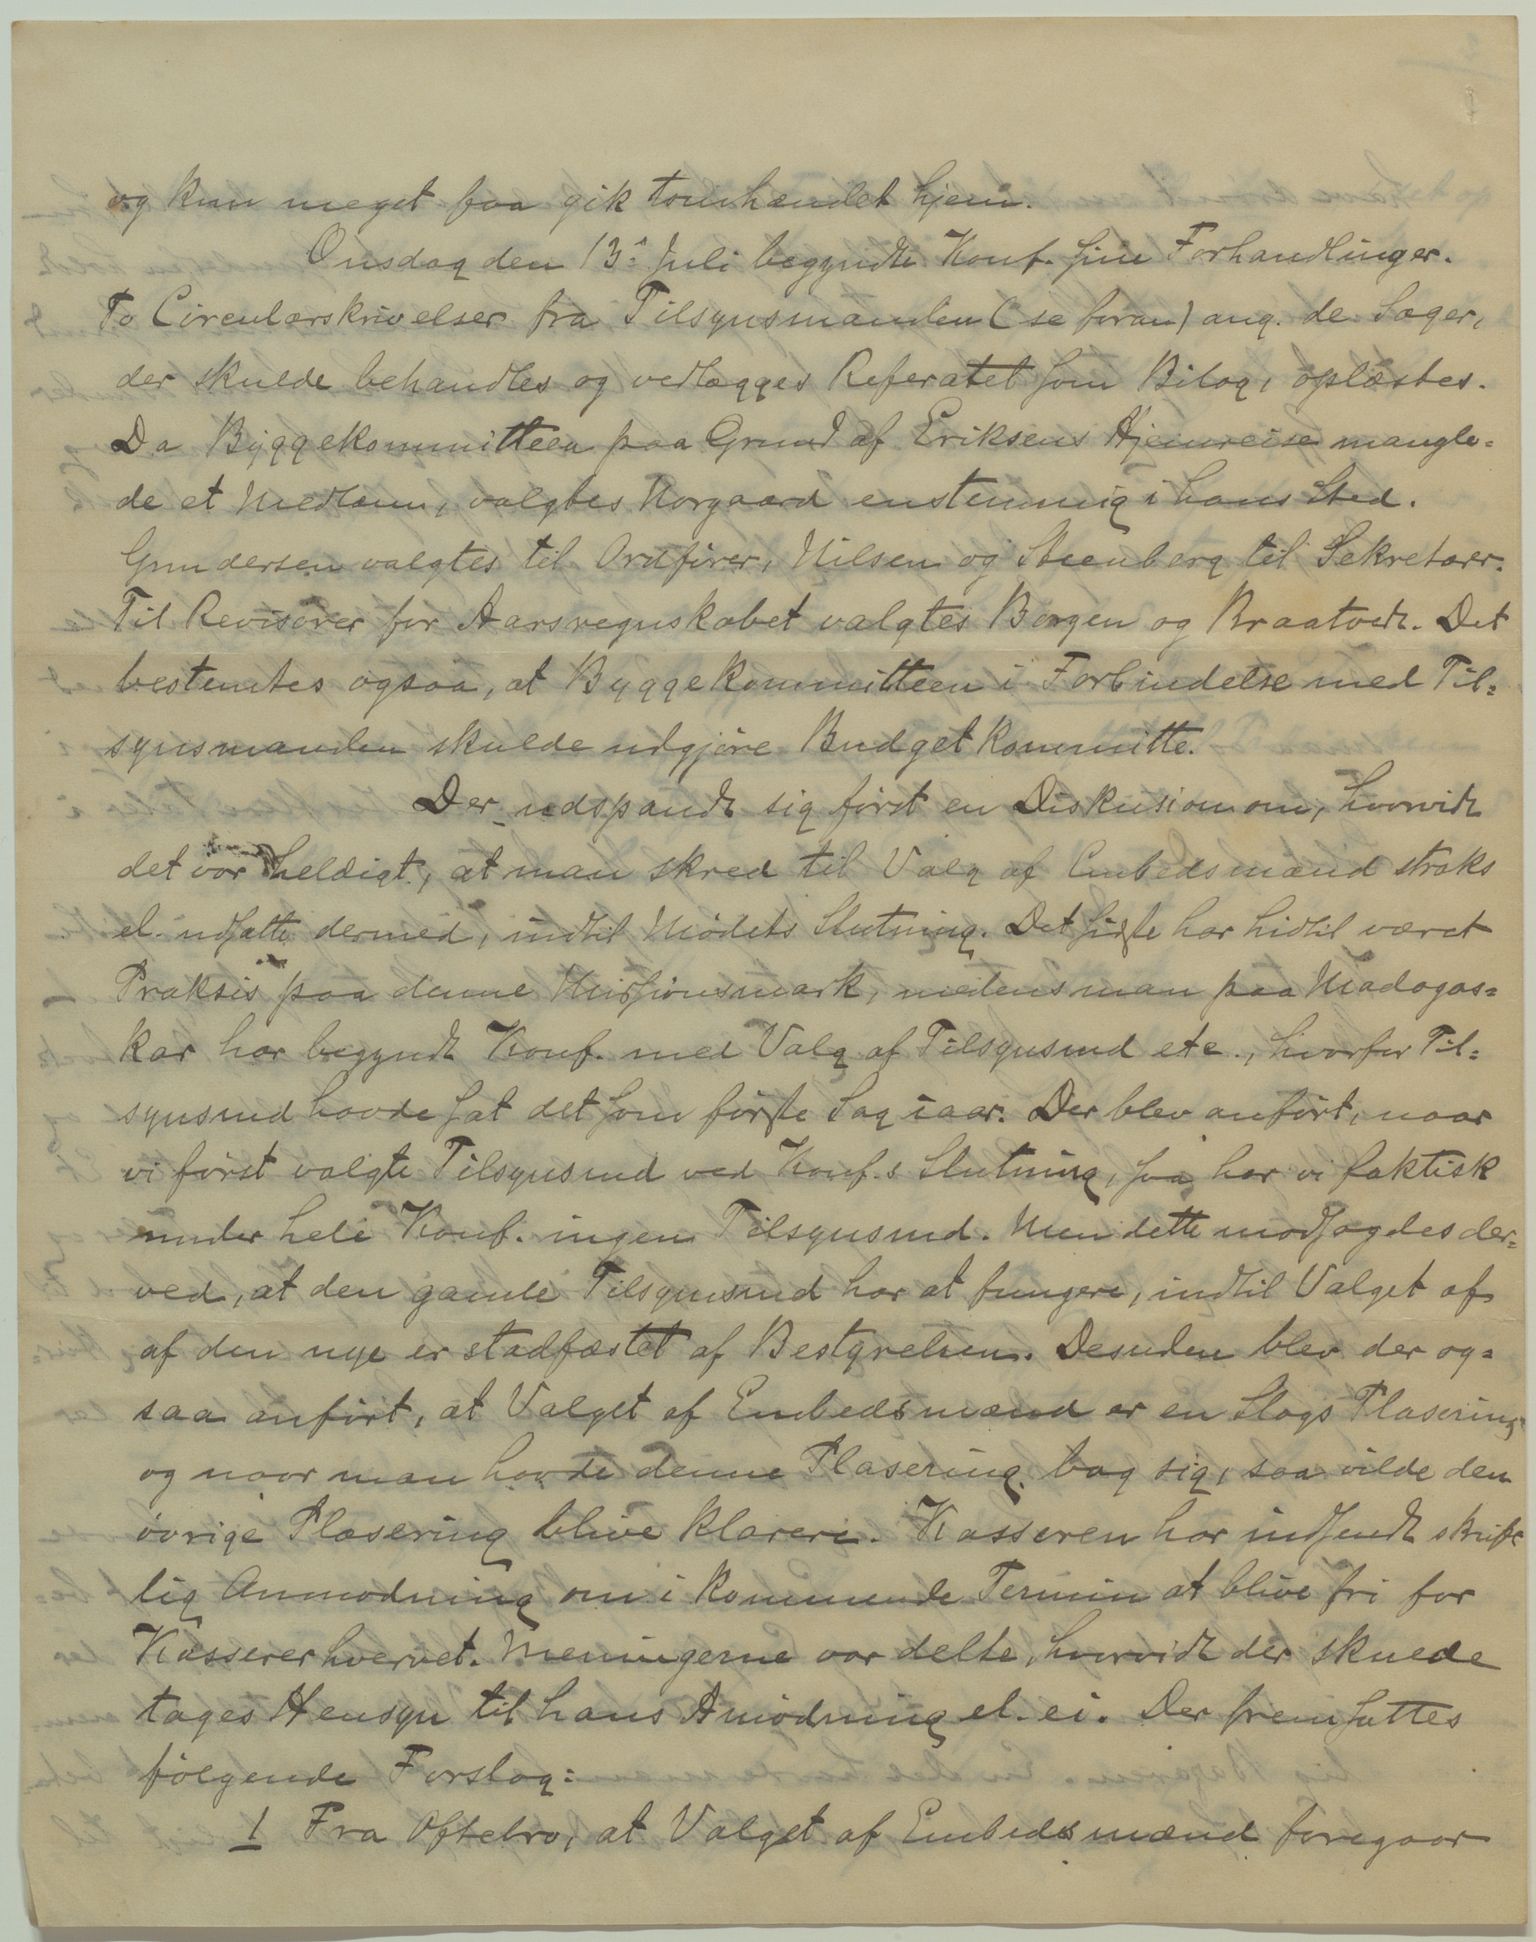 og kun meget faa gik tomhændet hjem.
Onsdag den 13de Juli begyndte Konf. sine Forhandlinger.
To Circulærskrivelser fra Tilsynsmanden (se foran) ang. de Sager,
der skulde behandles og vedlægges Referatet som Bilag, oplæstes.
Da Byggekommitteen paa Grund af Eriksens Hjemreise mangle-
de et Medlem, valgtes Norgaard enstemmig i hans Sted.
Gundersen valgtes til Ordfører, Nilsen og Steenberg til Sekretærr.
Til Revisorer for Aarsregnskabet valgtes Borgen og Braatvedt. Det
bestemtes ogsaa, at Byggekommitteen i Forbindelse med Til-
synsmanden skulde udgjøre Budgetkommitte.
Der udspandt sig først en Diskusion om, hvorvidt
det var heldigt, at man skred til Valg af Embedsmænd straks
el. udsætte dermed, indtil Mødets Slutning. Det sidste har hidtil været
Praksis paa denne Missionsmark, medens man paa Madagas-
kar har begyndt Konf. med Valg af Tilsynsmd etc., hvorfor Til-
synsmd havde sat det som første Sag iaar. Der blev anført, naar
vi først valgte Tilsynsmd ved Konf.s Slutning, saa har vi faktisk
under hele Konf. ingen Tilsynsmd. Men dette modsagdes der-
ved, at den gamle Tilsynsmd har at fungere, indtil Valget af
af den nye er stadfæstet af Bestyrelsen. Desuden blev der og-
saa anført, at Valget af Embedsmænd er en Slags Plasering
og naar man havde denne Plasering bag sig, saa vilde den
øvrige Plasering blive klarere. Kasseren har indsendt skrift-
lig Anmodning om i kommende Termin at blive fri for
Kassererhvervet. Meningerne var delte, hvorvidt der skulde
tages Hensyn til hans Amodning el. ei. Der fremsattes
følgende Forslag:
1 Fra Oftebro, at Valget af Embedsmænd foregaar